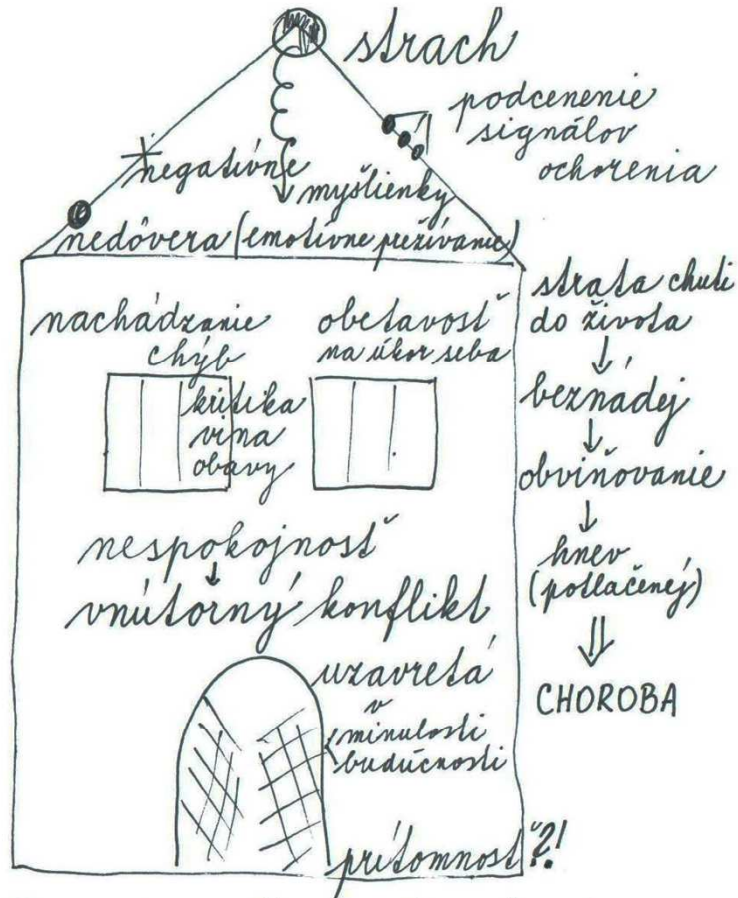 strach
podcenenie
signálov
ochorenia
negatívne
myšlienky
nedôvera (emotívne prežívanie)
nachádzanie
chýb
obetavosť
na úkor seba
kritika
vina
obavy
nespokojnosť
↓
vnútorný konflikt
uzavretá
v
minulosti
budúcnosti
prítomnosť?!
strata chuti
do života
↓
beznádej
↓
obviňovanie
↓
hnev
(potlačený)
⇓
CHOROBA